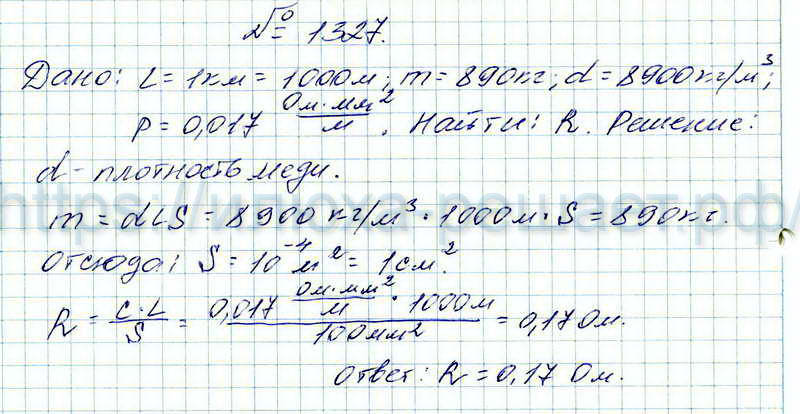 № 1327.
Дано: L = 1км = 1000м; m = 890кг; d = 8900кг/м³;
p = 0,017 Ом·мм²/м. Найти: R. Решение:
d - плотность меди.
m = dLS = 8900 кг/м³ · 1000м · S = 890кг.
Отсюда: S = 10⁻⁴ м² = 1см².
R = C·L/S = 0,017 Ом·мм²/м · 1000м / 100мм² = 0,17 Ом.
Ответ: R = 0,17 Ом.